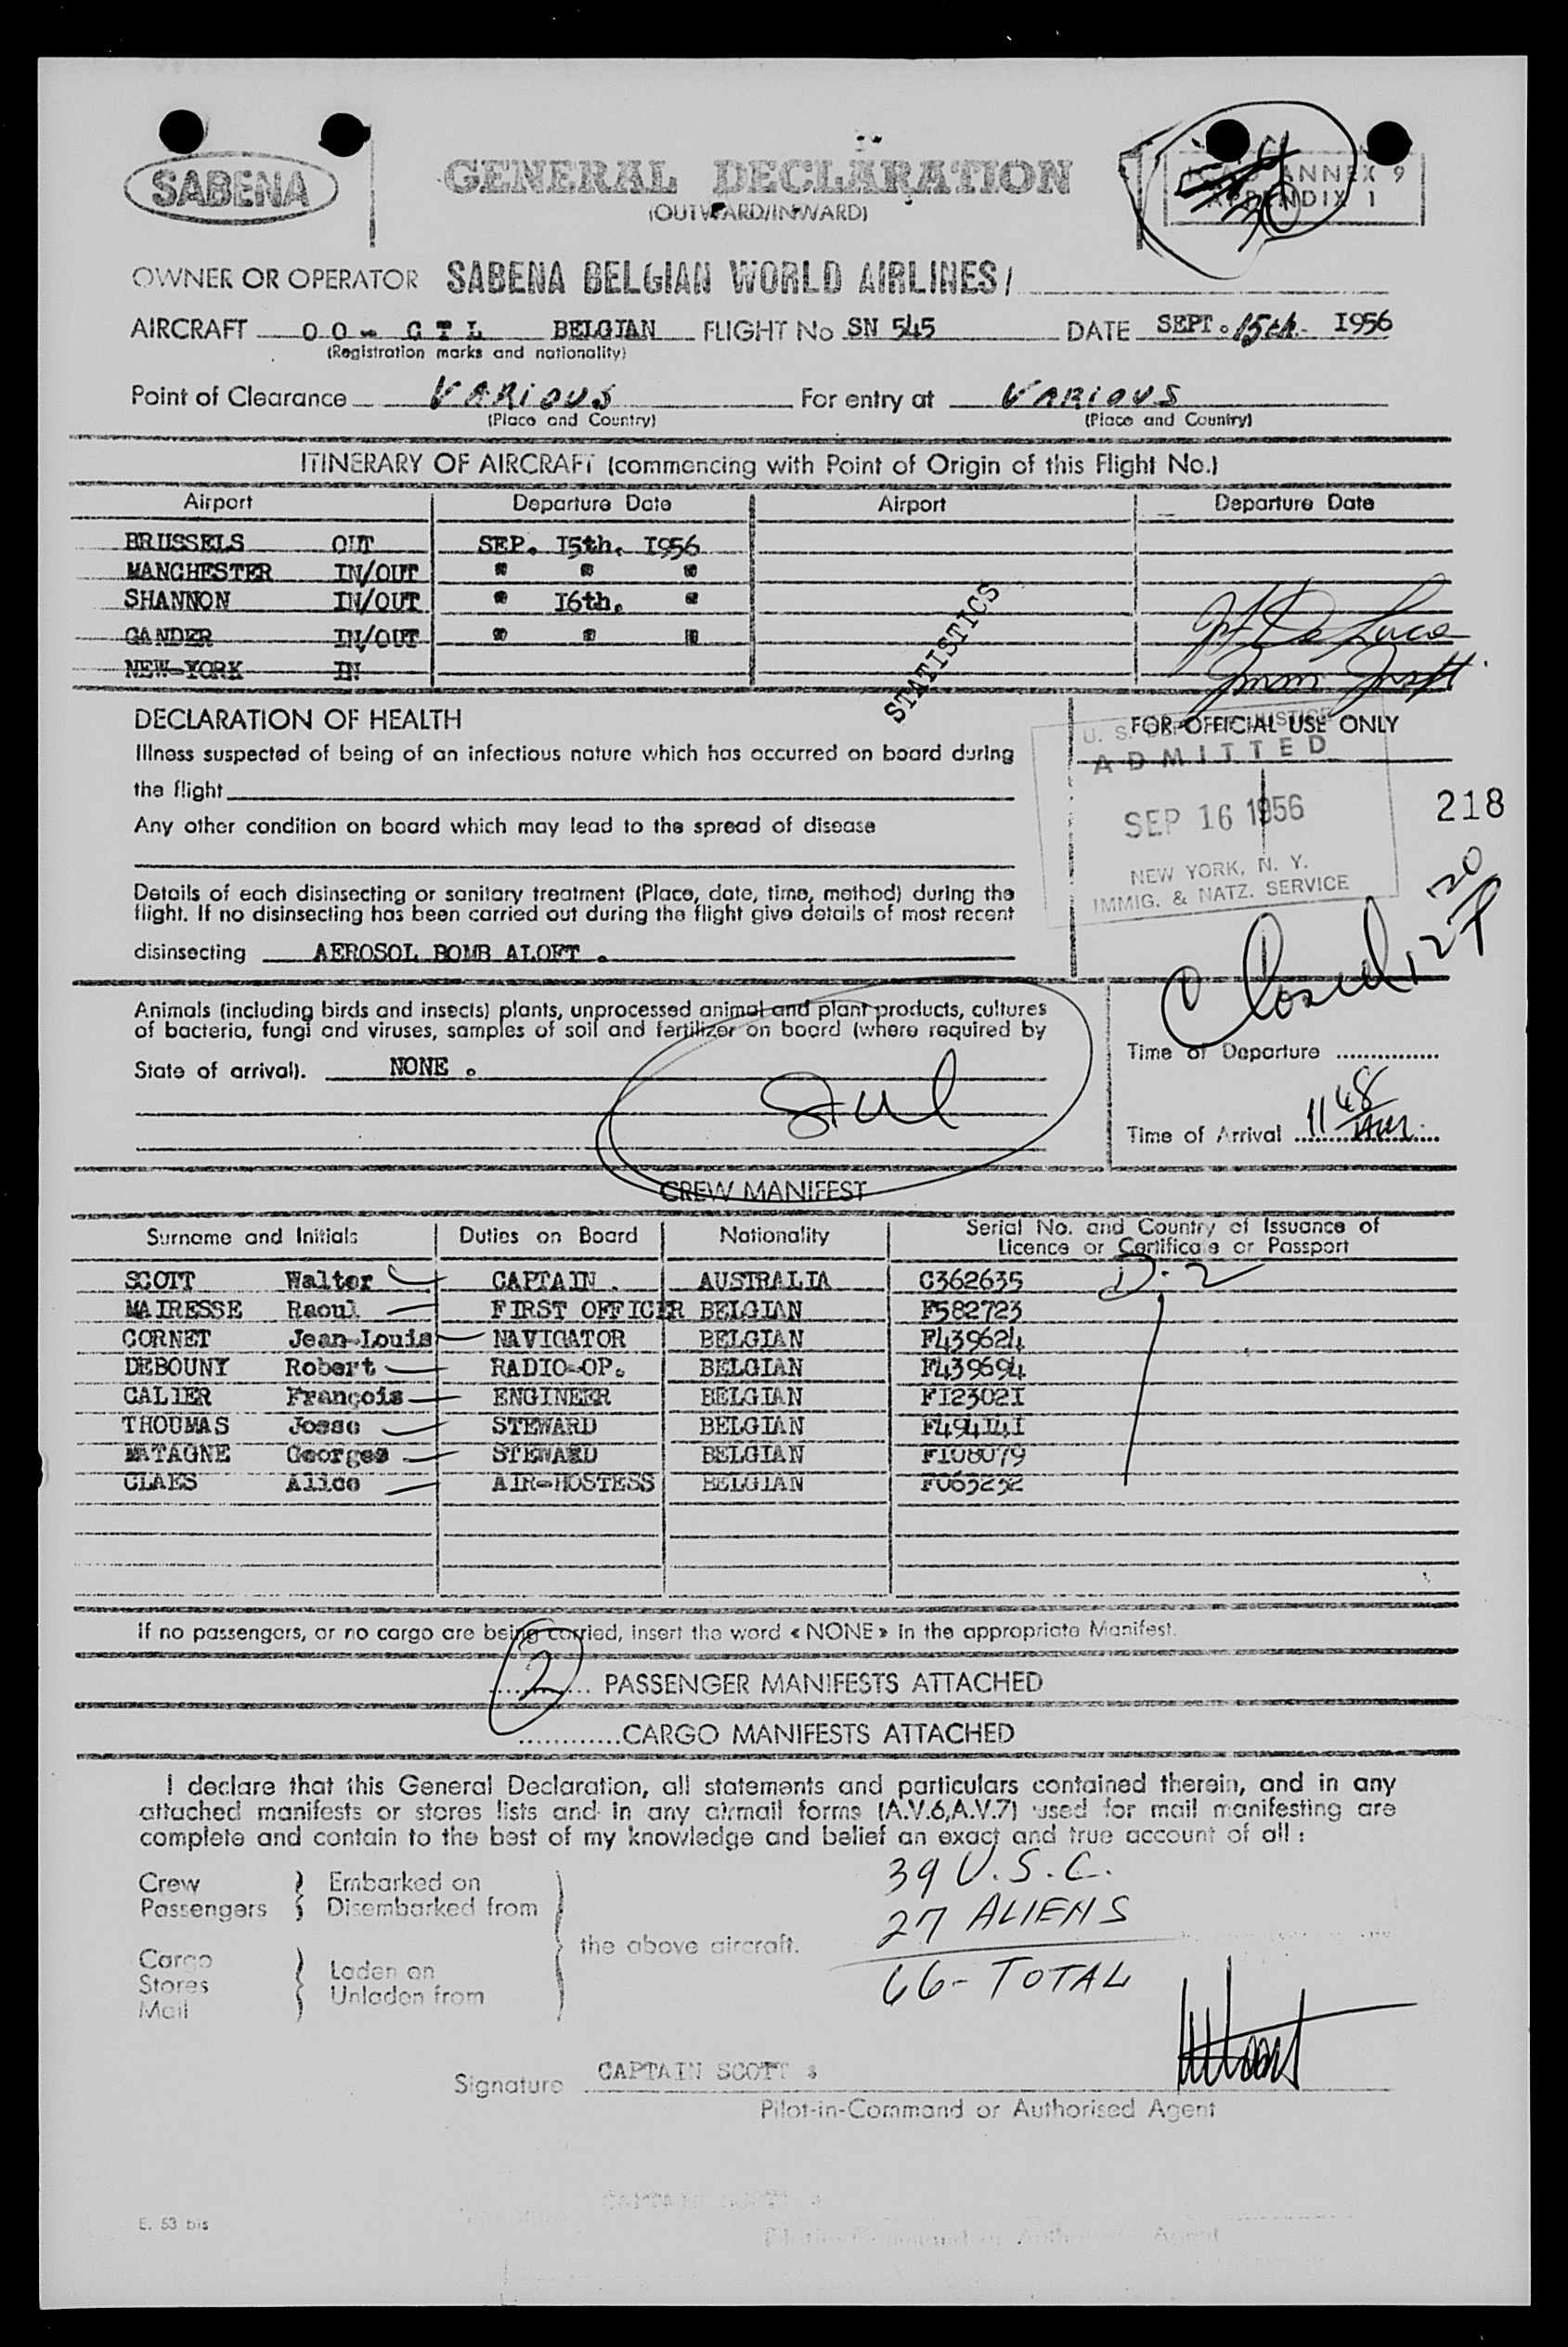 SABENA
GENERAL DECLARATION
(OUTWARD/INWARD)
ICAO ANNEX 9
APPENDIX 1
30
OWNER OR OPERATOR SABENA BELGIAN WORLD AIRLINES/
AIRCRAFT OO - CTL BELGIAN FLIGHT No SN 545 DATE SEPT. 15th- I956
(Registration marks and nationality)
Point of Clearance VARIOUS For entry at VARIOUS
(Place and Country) (Place and Country)
ITINERARY OF AIRCRAFT (commencing with Point of Origin of this Flight No.)
Airport Departure Date Airport Departure Date
BRUSSELS OUT SEP. I5th. I956
MANCHESTER IN/OUT " " "
SHANNON IN/OUT " I6th. "
GANDER IN/OUT " " "
NEW-YORK IN
STATISTICS
De Luca
Imm Insp
DECLARATION OF HEALTH
Illness suspected of being of an infectious nature which has occurred on board during
the flight
Any other condition on board which may lead to the spread of disease
Details of each disinsecting or sanitary treatment (Place, date, time, method) during the
flight. If no disinsecting has been carried out during the flight give details of most recent
disinsecting AEROSOL BOMB ALOFT .
FOR OFFICIAL USE ONLY
U. S. DEPT. OF JUSTICE
ADMITTED
SEP 16 1956
NEW YORK, N. Y.
IMMIG. & NATZ. SERVICE
218
Closed 12 20 P
Animals (including birds and insects) plants, unprocessed animal and plant products, cultures
of bacteria, fungi and viruses, samples of soil and fertilizer on board (where required by
State of arrival). NONE .
Time of Departure
Time of Arrival 11 48 AM
CREW MANIFEST
Surname and Initials Duties on Board Nationality Serial No. and Country of Issuance of
Licence or Certificate or Passport
SCOTT Walter CAPTAIN . AUSTRALIA C362635 D-2
MAIRESSE Raoul FIRST OFFICER BELGIAN F582723
CORNET Jean-Louis NAVIGATOR BELGIAN F439624
DEBOUNY Robert RADIO-OP. BELGIAN F439694
CALIER François ENGINEER BELGIAN FI2302I
THOUMAS Josse STEWARD BELGIAN F494I4I
MATAGNE Georges STEWARD BELGIAN FI08079
CLAES Alice AIR-HOSTESS BELGIAN F065252
If no passengers, or no cargo are being carried, insert the word « NONE » in the appropriate Manifest.
2 PASSENGER MANIFESTS ATTACHED
CARGO MANIFESTS ATTACHED
I declare that this General Declaration, all statements and particulars contained therein, and in any
attached manifests or stores lists and in any airmail forms (A.V.6,A.V.7) used for mail manifesting are
complete and contain to the best of my knowledge and belief an exact and true account of all :
39 U.S.C.
27 ALIENS
66 - TOTAL
Crew
Passengers
Embarked on
Disembarked from
the above aircraft.
Cargo
Stores
Mail
Laden on
Unladen from
Signature CAPTAIN SCOTT
Pilot-in-Command or Authorised Agent
E. 53 bis